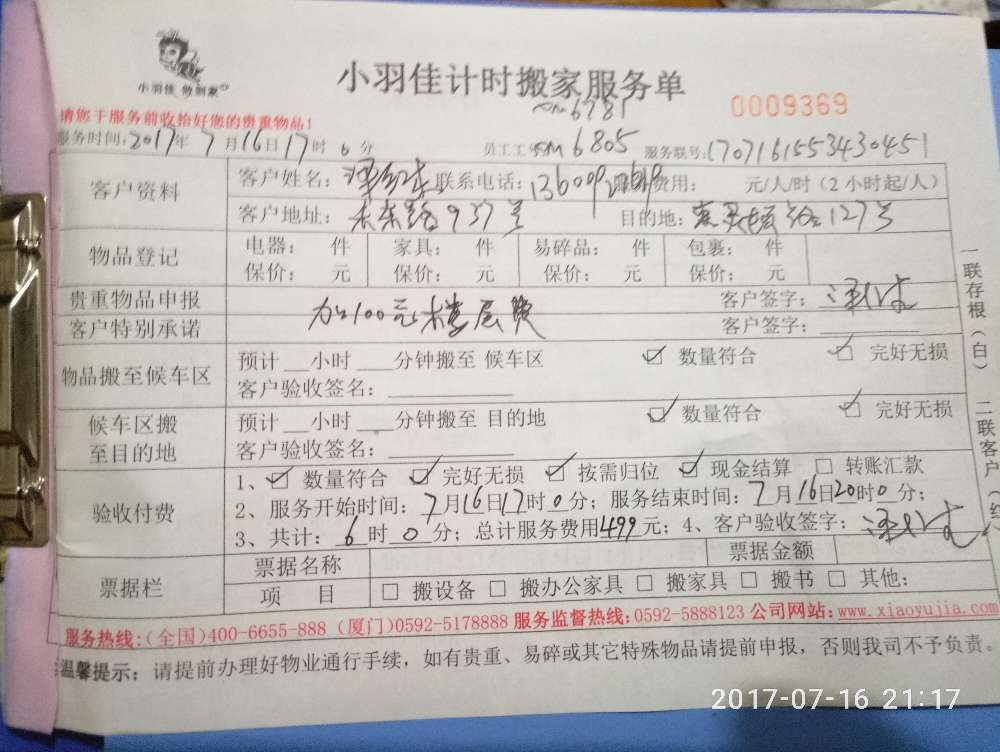 小羽佳 帮到家
小羽佳计时搬家服务单
6781
0009369
请您于服务前收拾好您的贵重物品!
服务时间:2017年 7月16日17时0分 员工工号 6805 服务联号:1707161553430451
客户资料
客户姓名: 联系电话: 服务费用: 元/人/时(2小时起/人)
客户地址: 937号 目的地: 127号
物品登记
电器: 件 家具: 件 易碎品: 件 包裹: 件
保价: 元 保价: 元 保价: 元 保价: 元
贵重物品申报 客户签字:
客户特别承诺 加100元楼层费 客户签字:
物品搬至候车区
预计__小时____分钟搬至 候车区 ☑ 数量符合 ☑ 完好无损
客户验收签名:
候车区搬至目的地
预计__小时____分钟搬至 目的地 ☑ 数量符合 ☑ 完好无损
客户验收签名:
验收付费
1、☑ 数量符合 ☑ 完好无损 ☑ 按需归位 ☑ 现金结算 □ 转账汇款
2、服务开始时间:7月16日17时0分;服务结束时间:7月16日20时0分;
3、共计:6时0分;总计服务费用499元;4、客户验收签字:
票据栏
票据名称 票据金额
项 目 □ 搬设备 □ 搬办公家具 □ 搬家具 □ 搬书 □ 其他:
一联存根(白) 二联客户(红
服务热线:(全国)400-6655-888 (厦门)0592-5178888 服务监督热线:0592-5888123 公司网站:www.xiaoyujia.com
温馨提示:请提前办理好物业通行手续,如有贵重、易碎或其它特殊物品请提前申报,否则我司不予负责。
2017-07-16 21:17